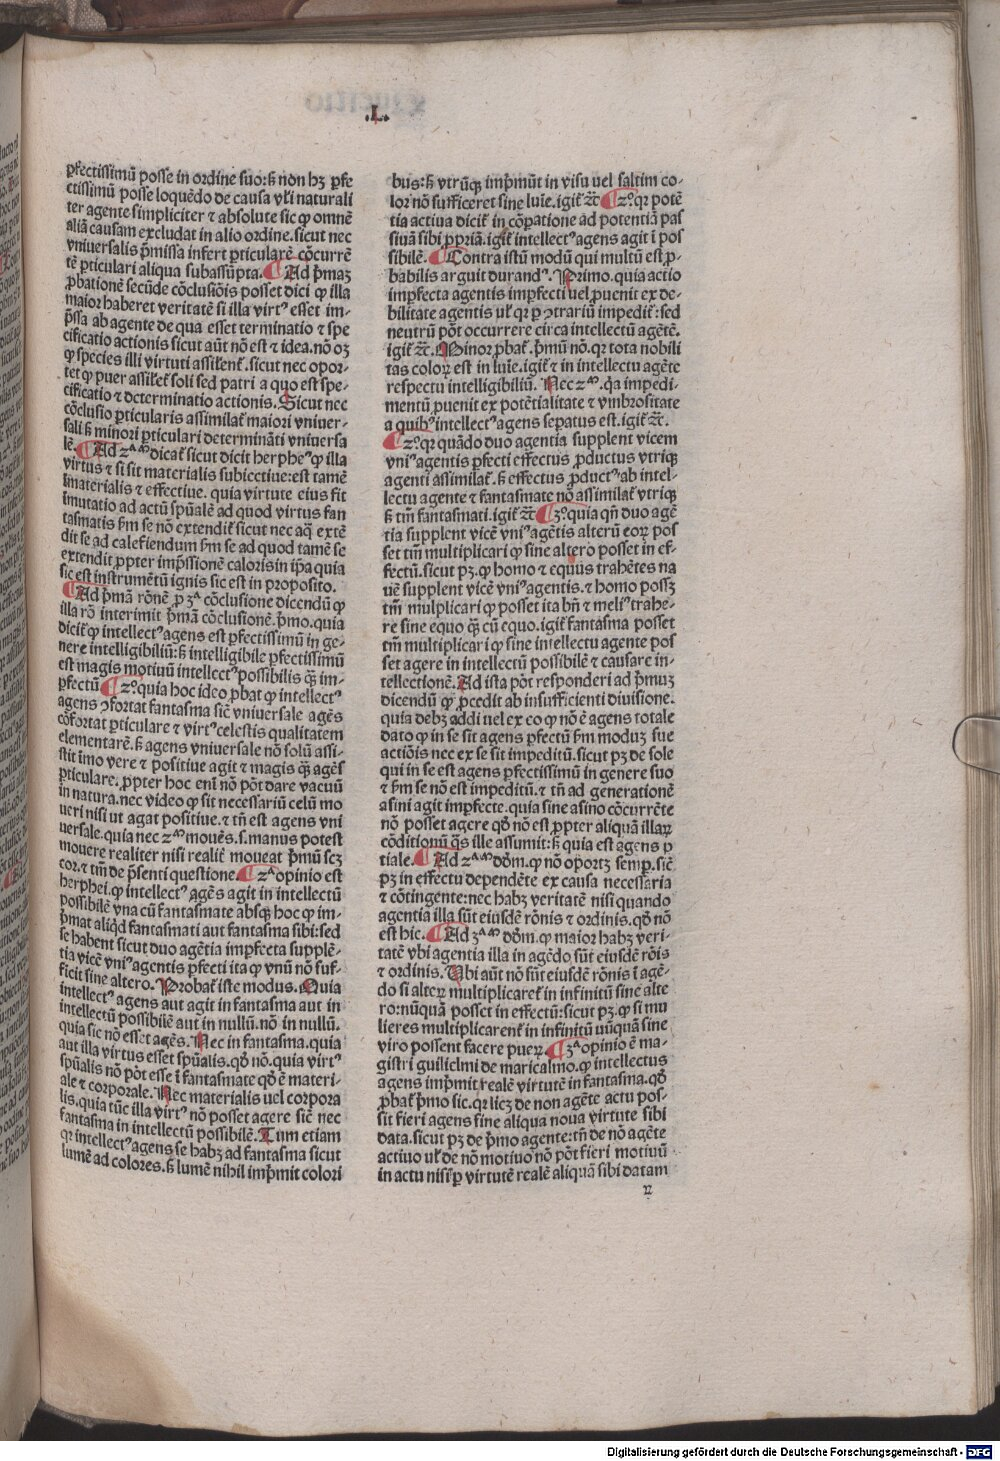 .L.
ꝑfectissimū posse in ordine suo:ẜ non hꝫ ꝑfe
ctissimū posse loquēdo de causa vl̄i naturali
ter agente simpliciter ⁊ absolute sic ꝙ omnē
aliā causam excludat in alio ordine.sicut nec
vniuersalis p̄missa infert ꝑticularē cōcurrē
tē ꝑticulari aliqua subassūpta. ¶ Ad p̄maꝫ
ꝓbationē secūde cōclusiōis posset dici ꝙ illa
maior haberet veritatē si illa virtꝰ esset im-
p̄ssa ab agente de qua esset terminatio ⁊ spe
cificatio actionis sicut aūt nō est ⁊ idea.nō oꝫ
ꝙ species illi virtuti assil̄ent᷑.sicut nec opor-
tet ꝙ puer assil̄et᷑ soli sed patri a quo est spe-
cificatio ⁊ determinatio actionis. Sicut nec
cōclusio ꝑticularis assimilat᷑ maiori vniuer-
sali ẜ minori ꝑticulari determināti vniuersa
lē. ¶ Ad 2ᵃᵐ dicat᷑ sicut dicit herpheꝰ ꝙ illa
virtus ⁊ si sit materialis subiectiue:est tamē
īmaterialis ⁊ effectiue. quia virtute eius fit
īmutatio ad actū sp̄ualē ad quod virtus fan
tasmatis ẜm se nō extendit᷑ sicut nec aq̄ extē
dit se ad calefiendum ẜm se ad quod tamē se
extendit ꝓpter imp̄ssionē caloris in ip̄a quia
sic est instrumētū ignis sic est in proposito.
¶ Ad p̄mā rōnē ꝓ 3ᵃ cōclusione dicendū ꝙ
illa rō interimit p̄mā cōclusionē.p̄mo.quia
dicit᷑ ꝙ intellectꝰ agens est ꝑfectissimū in ge-
nere intelligibiliū:ẜ intelligibile ꝑfectissimū
est magis motiuū intellectꝰ possibilis qꝫ̄ im-
ꝑfectū ¶ 2º.quia hoc ideo ꝓbat ꝙ intellectꝰ
agens ꝯfortat fantasma sicē vniuersale agēs
cōfortat ꝑticulare ⁊ virtꝰ celestis qualitatem
elementarē.ẜ agens vniuersale nō solū assi-
stit īmo vere ⁊ positiue agit ⁊ magis qꝫ̄ agēs
ꝑticulare.ꝓpter hoc eni nō pōt dare vacuū
in natura.nec video ꝙ sit necessariū celū mo
ueri nisi ut agat positiue.⁊ tn̄ est agens vni
uersale.quia nec 2ᵐ mouēs.s.manus potest
mouere realiter nisi realit᷑ moueat p̄mū scꝫ
cor.⁊ tm̄ de p̄senti questione. ¶ 2ᵃ opinio est
herphei.ꝙ intellectꝰ agēs agit in intellectū
possibilē vna cū fantasmate absqꝫ hoc ꝙ im-
p̄mat aliqd̄ fantasmati aut fantasma sibi:sed
se habent sicut duo agētia imꝑfecta supplē-
tia vicē vniꝰ agentis ꝑfecti ita ꝙ vnū nō suf-
ficit sine altero. Probat᷑ iste modus. Quia
intellectꝰ agens aut agit in fantasma aut in
intellectū possibilē aut in nullū.nō in nullū.
quia sic nō esset agēs. Nec in fantasma.quia
aut illa virtus esset sp̄ualis.qd̄ nō.quia virtꝰ
sp̄ualis nō pōt esse ī fantasmate qd̄ ē materi-
ale ⁊ corporale. Nec materialis uel corpora
lis.quia tūc illa virtꝰ nō posset agere sicē nec
fantasma in intellectū possibilē. Tum etiam
qꝛ intellectꝰ agens se habꝫ ad fantasma sicut
lumē ad colores.ẜ lumē nihil imp̄mit colori
bus:ẜ vtrūqꝫ imp̄mūt in visu uel saltim co-
lor nō sufficeret sine luīe.igit᷑ ⁊c̄ ¶ 2º.qꝛ potē
tia actiua dicit᷑ in cōꝑatione ad potentiā pas
siuā sibi ꝓpriā.igit᷑ intellectꝰ agens agit ī pos
sibilē. ¶ Contra istū modū qui multū est ꝓ-
babilis arguit durandꝰ. Primo.quia actio
imꝑfecta agentis imꝑfecti uel ꝓuenit ex de-
bilitate agentis ul᷑ qꝛ ꝑ ꝯtrariū impedit᷑:sed
neutrū pōt occurrere circa intellectū agētē.
igit᷑ ⁊c̄. Minor ꝓbat᷑. p̄mū nō.qꝛ tota nobili
tas coloꝝ est in luīe.igit᷑ ⁊ in intellectu agēte
respectu intelligibiliū. Nec 2ᵐ. q̄a impedi-
mentū ꝓuenit ex potētialitate ⁊ vmbrositate
a quibꝰ intellectꝰ agens seꝑatus est.igit᷑ ⁊c̄.
¶ 2º.qꝛ quādo duo agentia supplent vicem
vniꝰ agentis ꝑfecti effectus ꝓductus vtriqꝫ
agenti assimilat᷑.ẜ effectus ꝓductꝰ ab intel-
lectu agente ⁊ fantasmate nō assimilat᷑ vtriqꝫ
ẜ tm̄ fantasmati.igit᷑ ⁊c̄ ¶ 3º.quia qn̄ duo agē
tia supplent vicē vniꝰ agētis alterū eoꝝ pos
set tm̄ multiplicari ꝙ sine altero posset in ef-
fectū.sicut pꝫ.ꝙ homo ⁊ equus trahētes na
uē supplent vicē vniꝰ agentis.⁊ homo possꝫ
tm̄ mulplicari ꝙ posset ita bn̄ ⁊ meliꝰ trahe-
re sine equo qꝫ̄ cū equo.igit᷑ fantasma posset
tm̄ multiplicari ꝙ sine intellectu agente pos
set agere in intellectū possibilē ⁊ causare in-
tellectionē. Ad ista pōt responderi ad p̄muꝫ
dicendū ꝙ ꝓcedit ab insufficienti diuisione.
quia debꝫ addi uel ex eo ꝙ nō ē agens totale
dato ꝙ in se sit agens ꝑfectū ẜm moduꝫ sue
actiōis nec ex se sit impeditū.sicut pꝫ de sole
qui in se est agens ꝑfectissimū in genere suo
⁊ ẜm se nō est impeditū.⁊ tn̄ ad generationē
asini agit imꝑfecte.quia sine asino cōcurrēte
nō posset agere qd̄ nō est ꝓpter aliquā illaꝝ
cōditionū q̄s ille assumit:ẜ quia est agens ꝑ
tiale. ¶ Ad 2ᵃᵐ dd̄m.ꝙ nō oportꝫ semꝑ.sicē
pꝫ in effectu dependēte ex causa necessaria
⁊ cōtingente:nec habꝫ veritatē nisi quando
agentia illa sūt eiusdē rōnis ⁊ ordinis.qd̄ nō
est hic. ¶ Ad 3ᵃᵐ dd̄m.ꝙ maior habꝫ veri-
tatē vbi agentia illa in agēdo sūt eiusdē rōis
⁊ ordinis. Vbi aūt nō sūt eiusdē rōnis ī agē-
do si alteꝝ multiplicaret᷑ in infinitū sine alte
ro:nūquā posset in effectū:sicut pꝫ.ꝙ si mu
lieres multiplicarent᷑ in infinitū nūquā sine
viro possent facere pueꝝ. ¶ 3ᵃ opinio ē ma-
gistri guilielmi de maricalmo.ꝙ intellectus
agens imp̄mit realē virtutē in fantasma.qd̄
ꝓbat᷑ p̄mo sic.qꝛ licꝫ de non agēte actu pos-
sit fieri agens sine aliqua noua virtute sibi
data.sicut pꝫ de p̄mo agente:tn̄ de nō agēte
actiuo ul᷑ de nō motiuo nō pōt fieri motiuū
in actu nisi ꝑ virtutē realē aliquā sibi datam
n
Digitalisierung gefördert durch die Deutsche Forschungsgemeinschaft - DFG